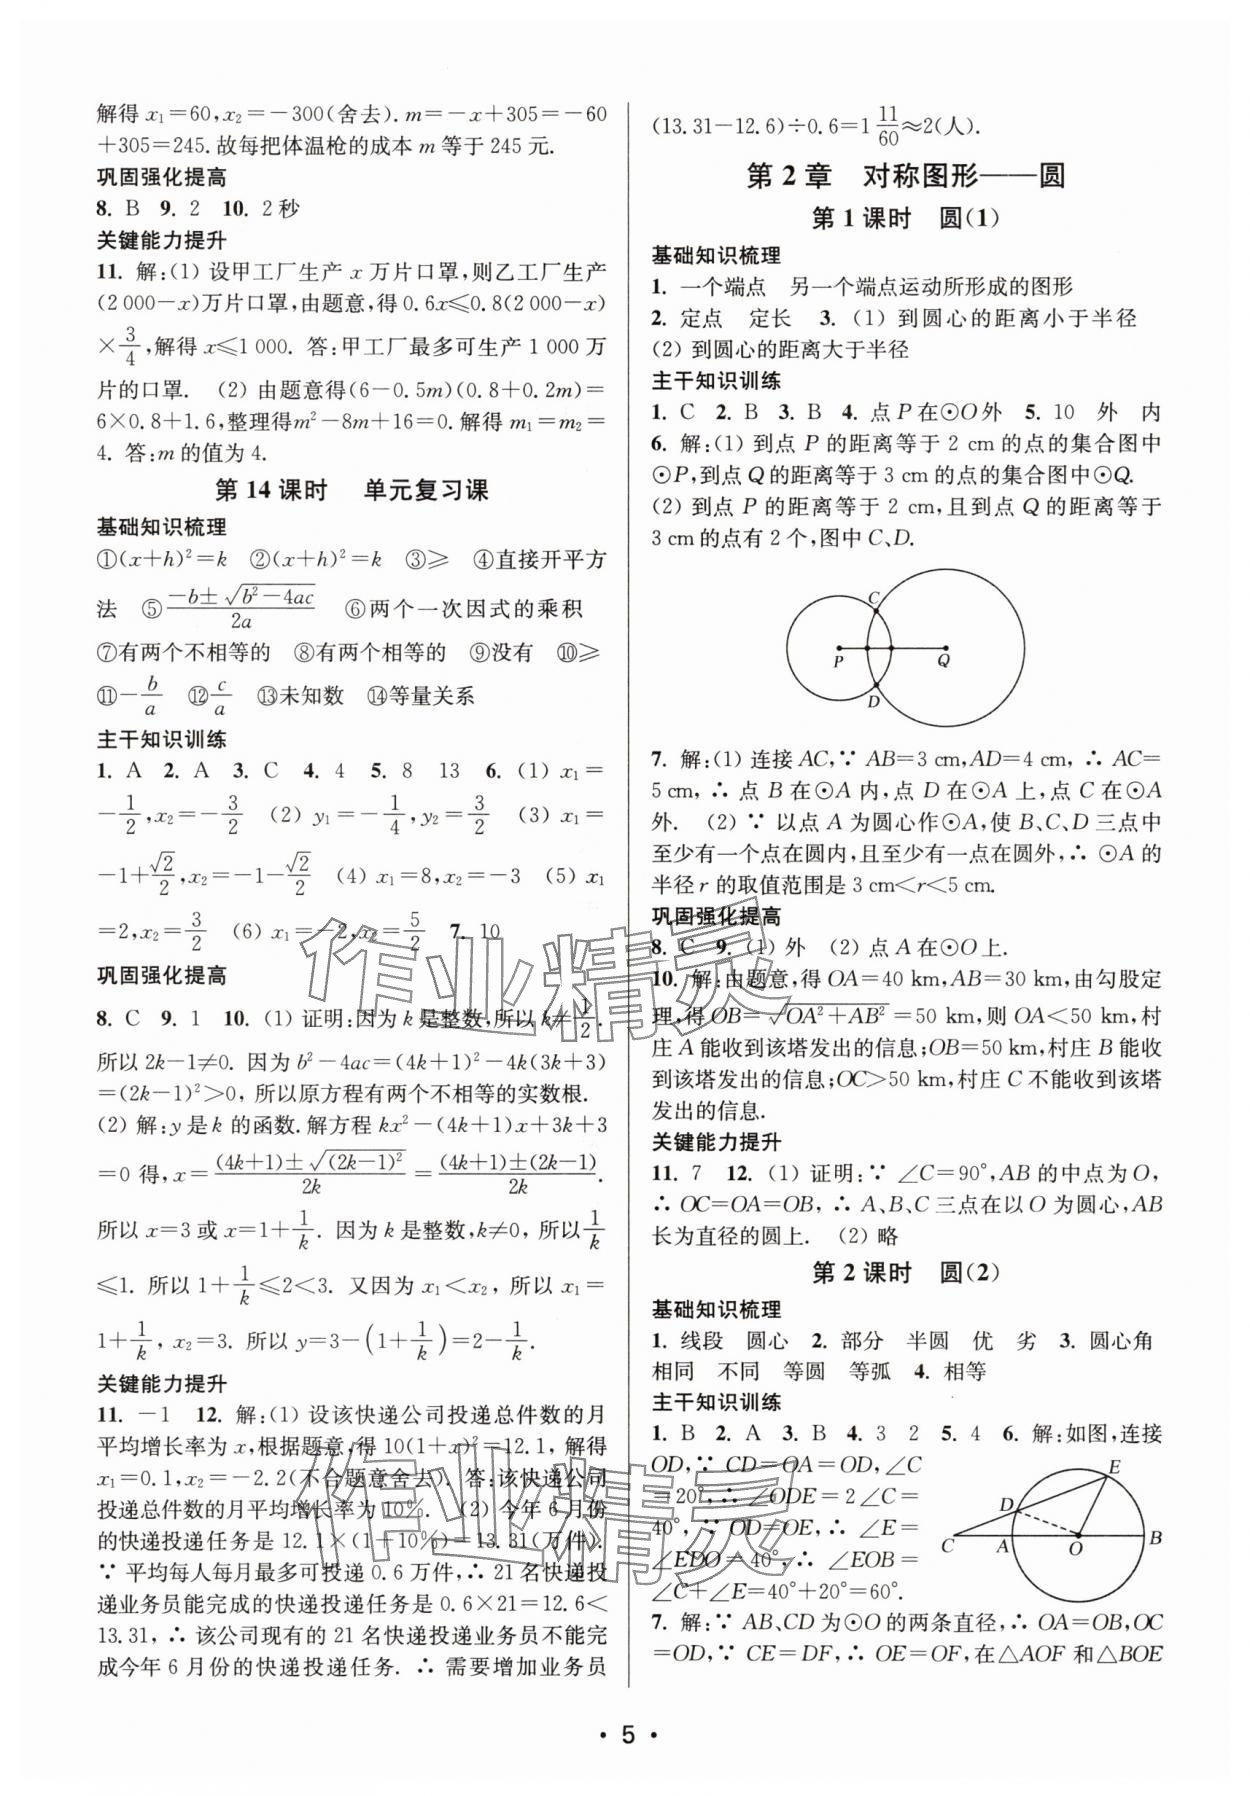 解得 x₁=60,x₂=-300(舍去).m=-x+305=-60
+305=245.故每把体温枪的成本 m 等于 245 元.
巩固强化提高
8. B 9. 2 10. 2 秒
关键能力提升
11. 解:(1) 设甲工厂生产 x 万片口罩,则乙工厂生产
(2 000-x)万片口罩,由题意,得 0.6x≤0.8(2 000-x)
×3/4,解得 x≤1 000. 答:甲工厂最多可生产 1 000 万
片的口罩. (2) 由题意得(6-0.5m)(0.8+0.2m)=
6×0.8+1.6,整理得m²-8m+16=0.解得 m₁=m₂=
4. 答:m 的值为 4.
第 14 课时 单元复习课
基础知识梳理
①(x+h)²=k ②(x+h)²=k ③≥ ④直接开平方
法 ⑤(-b±√(b²-4ac))/2a ⑥两个一次因式的乘积
⑦有两个不相等的 ⑧有两个相等的 ⑨没有 ⑩≥
⑪-b/a ⑫c/a ⑬未知数 ⑭等量关系
主干知识训练
1. A 2. A 3. C 4. 4 5. 8 13 6. (1) x₁=
-1/2,x₂=-3/2 (2) y₁=-1/4,y₂=3/2 (3) x₁=
-1+√2/2,x₂=-1-√2/2 (4) x₁=8,x₂=-3 (5) x₁
=2,x₂=3/2 (6) x₁=-2,x₂=5/2 7. 10
巩固强化提高
8. C 9. 1 10. (1) 证明:因为 k 是整数,所以 k≠1/2.
所以 2k-1≠0. 因为 b²-4ac=(4k+1)²-4k(3k+3)
=(2k-1)²>0,所以原方程有两个不相等的实数根.
(2) 解:y 是 k 的函数.解方程 kx²-(4k+1)x+3k+3
=0 得,x=((4k+1)±√(2k-1)²)/2k=((4k+1)±(2k-1))/2k.
所以 x=3 或 x=1+1/k. 因为 k 是整数,k≠0,所以1/k
≤1. 所以 1+1/k≤2<3. 又因为 x₁<x₂,所以 x₁=
1+1/k, x₂=3. 所以 y=3-(1+1/k)=2-1/k.
关键能力提升
11. -1 12. 解:(1) 设该快递公司投递总件数的月
平均增长率为 x,根据题意,得 10(1+x)²=12.1,解得
x₁=0.1,x₂=-2.2(不合题意舍去). 答:该快递公司
投递总件数的月平均增长率为 10%. (2) 今年 6 月份
的快递投递任务是 12.1×(1+10%)=13.31(万件).
∵ 平均每人每月最多可投递 0.6 万件,∴ 21 名快递投
递业务员能完成的快递投递任务是 0.6×21=12.6<
13.31,∴ 该公司现有的 21 名快递投递业务员不能完
成今年 6 月份的快递投递任务. ∴ 需要增加业务员
(13.31-12.6)÷0.6=1 11/60≈2(人).
第 2 章 对称图形——圆
第 1 课时 圆(1)
基础知识梳理
1. 一个端点 另一个端点运动所形成的图形
2. 定点 定长 3. (1) 到圆心的距离小于半径
(2) 到圆心的距离大于半径
主干知识训练
1. C 2. B 3. B 4. 点 P 在⊙O 外 5. 10 外 内
6. 解:(1) 到点 P 的距离等于 2 cm 的点的集合图中
⊙P,到点 Q 的距离等于 3 cm 的点的集合图中⊙Q.
(2) 到点 P 的距离等于 2 cm,且到点 Q 的距离等于
3 cm 的点有 2 个,图中 C、D.
C
P Q
D
7. 解:(1) 连接 AC,∵ AB=3 cm,AD=4 cm,∴ AC=
5 cm, ∴ 点 B 在⊙A 内,点 D 在⊙A 上,点 C 在⊙A
外. (2) ∵ 以点 A 为圆心作⊙A,使 B、C、D 三点中
至少有一个点在圆内,且至少有一点在圆外,∴ ⊙A 的
半径 r 的取值范围是 3 cm<r<5 cm.
巩固强化提高
8. C 9. (1) 外 (2) 点 A 在⊙O 上.
10. 解:由题意,得 OA=40 km,AB=30 km,由勾股定
理,得 OB=√(OA²+AB²)=50 km,则 OA<50 km,村
庄 A 能收到该塔发出的信息;OB=50 km,村庄 B 能收
到该塔发出的信息;OC>50 km,村庄 C 不能收到该塔
发出的信息.
关键能力提升
11. 7 12. (1) 证明:∵ ∠C=90°,AB 的中点为 O,
∴ OC=OA=OB, ∴ A、B、C 三点在以 O 为圆心,AB
长为直径的圆上. (2) 略
第 2 课时 圆(2)
基础知识梳理
1. 线段 圆心 2. 部分 半圆 优 劣 3. 圆心角
相同 不同 等圆 等弧 4. 相等
主干知识训练
1. B 2. A 3. B 4. 3 2 5. 4 6. 解:如图,连接
OD,∵ CD=OA=OD,∠C
=20°,∴ ∠ODE=2∠C=
40°,∵ OD=OE,∴ ∠E=
∠EDO=40°,∴ ∠EOB=
∠C+∠E=40°+20°=60°.
E
D
C A O B
7. 解:∵ AB、CD 为⊙O 的两条直径,∴ OA=OB,OC
=OD,∵ CE=DF,∴ OE=OF,在△AOF 和△BOE
作业精灵
作业精灵
• 5 •